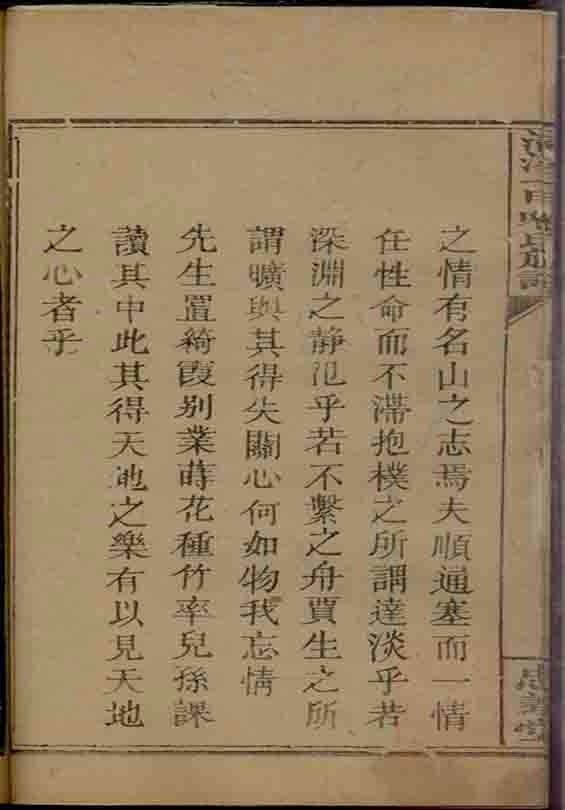 之情有名山之志焉夫順通塞而一情
任性命而不滯抱樸之所謂達淡乎若
深淵之静氾乎若不繫之舟賈生之所
謂曠與其得失關心何如物我忘情
先生置綺霞别業蒔花種竹率兒孫課
讀其中此其得天地之樂有以見天地
之心者乎